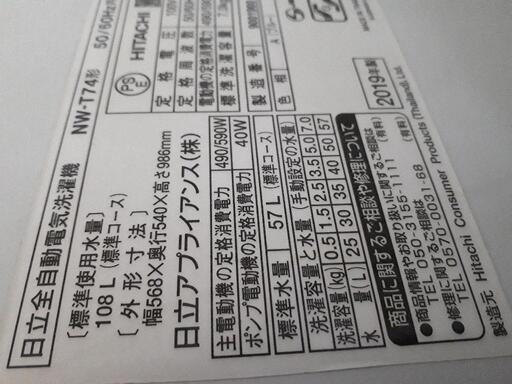 日立全自動電気洗濯機 NW-T74形 50/60Hz共用
〔標準使用水量〕
108L（標準コース）
〔外形寸法〕
幅568×奥行540×高さ986mm
日立アプライアンス（株）
PS
E
HITACHI
定格電圧 100V
定格周波数 50/60Hz
電動機の定格消費電力 490/590W
標準洗濯容量 7.0kg
製造番号
色相 A（ブルー）
2019年製
主電動機の定格消費電力 490/590W
ポンプ電動機の定格消費電力 40W
標準水量 57L（標準コース）
洗濯容量と水量（手動設定の水量）
洗濯容量(kg) 0.5 1.5 2.5 3.5 5.0 7.0
水量(L) 25 30 35 40 50 57
商品に関するご相談や修理について
●商品情報やお取り扱いに関するご相談は
TEL 050-3155-1111（有料）
●修理に関するご相談は
TEL 0570-0031-68（有料）
製造元 Hitachi Consumer Products (Thailand), Ltd.